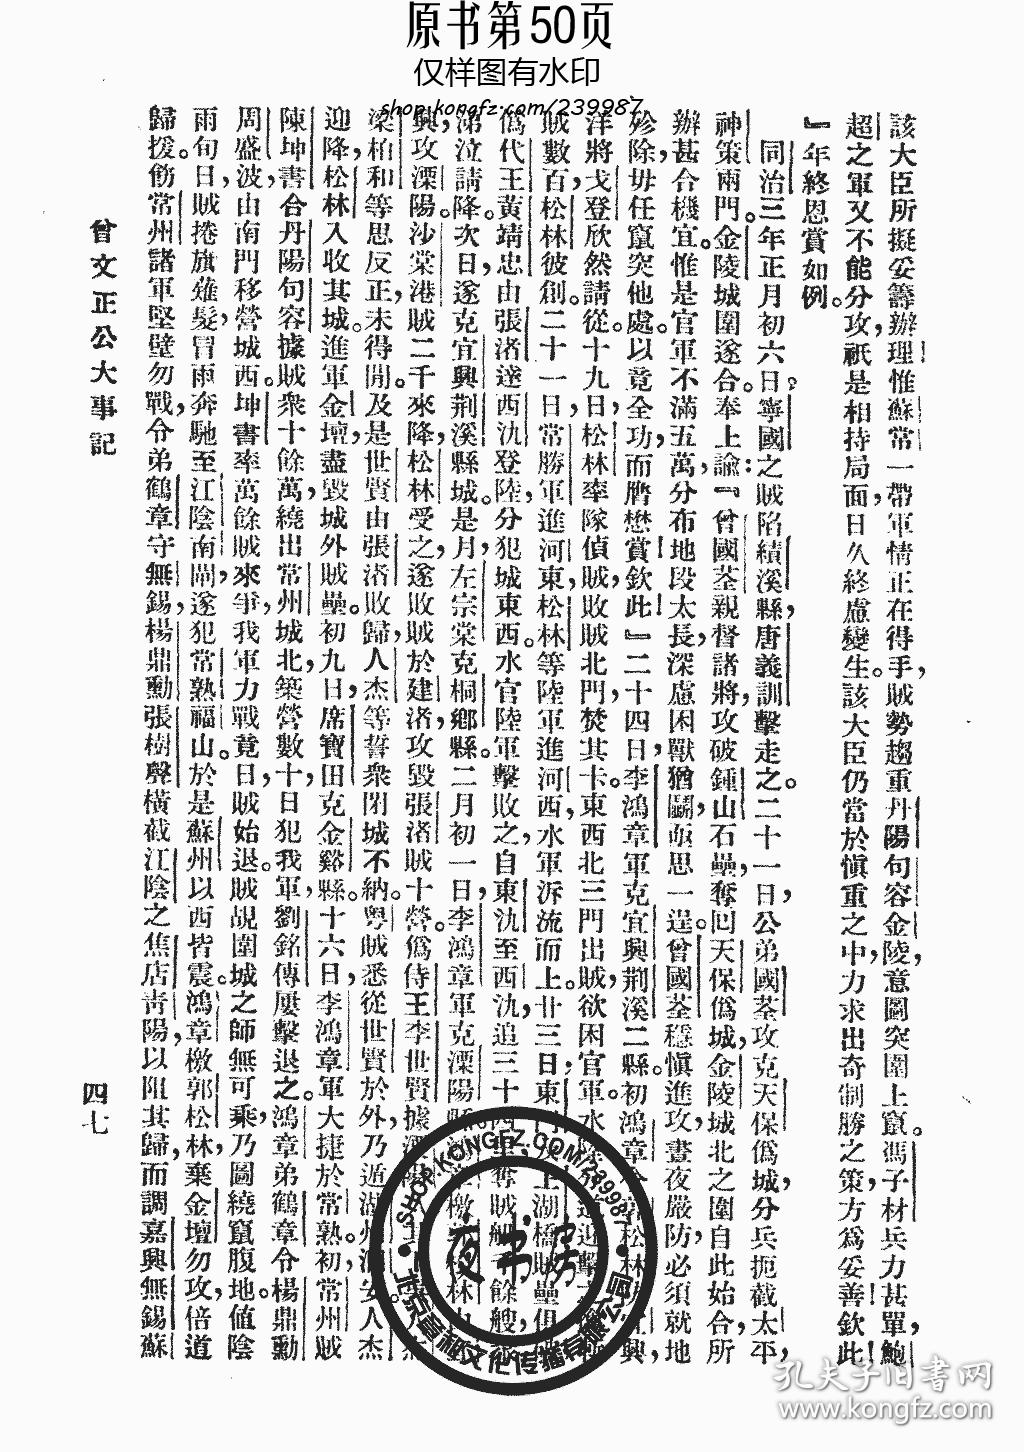 原书第50页
仅样图有水印
shop.kongfz.com/239987
該大臣所擬妥籌辦理惟蘇常一帶軍情正在得手，賊勢趨重丹陽句容金陵，意圖突圍上竄。馮子材兵力甚單，鮑
超之軍又不能分攻，祇是相持局面，日久終慮變生。該大臣仍當於慎重之中，力求出奇制勝之策，方為妥善！欽此！
』年終恩賞如例。
同治三年正月初六日，寧國之賊陷績溪縣，唐義訓擊走之。二十一日，公弟國荃攻克天保偽城，分兵扼截太平，
神策兩門。金陵城圍遂合。奉上諭：『曾國荃親督諸將，攻破鍾山石壘，奪回天保偽城，金陵城北之圍，自此始合，所
辦甚合機宜。惟是官軍不滿五萬，分布地段太長，深慮困獸猶鬭，敵思一逞。曾國荃穩慎進攻，晝夜嚴防，必須就地
殄除，毋任竄突他處。以竟全功，而膺懋賞，欽此！』二十四日，李鴻章軍克宜興荆溪二縣。初鴻章松林興，
洋將戈登欣然請從。十九日，松林率隊偵賊，敗賊北門，焚其卡。東西北三門出賊，欲困官軍。水
賊數百，松林彼創。二十一日，常勝軍進河東，松林等陸軍進河西，水軍泝流而上。廿三日，東上湖橋賊壘俱
偽代王黃靖忠由張渚逨西氿登陸，分犯城東西。水官陸軍擊敗之，自東氿至西氿，追三十奪賊千餘艘，
涕泣請降。次日，遂克宜興荆溪縣城。是月，左宗棠克桐鄉縣。二月初一日，李鴻章軍克溧陽縣檄林
興，攻溧陽。沙棠港賊二千來降，松林受之，遂敗賊於建渚，攻毀張渚賊十營。偽侍王李世賢據
梁柏和等思反正，未得閒。及是世賢由張渚敗歸，人杰等誓衆閉城不納。粵賊悉從世賢於外，乃遁湖安人杰
迎降，松林入收其城。進軍金壇，盡毀城外賊壘。初九日，席寶田克金谿縣。十六日，李鴻章軍大捷於常熟。初，常州賊
陳坤書合丹陽句容據賊衆十餘萬，繞出常州城北，築營數十，日犯我軍，劉銘傳屢擊退之。鴻章弟鶴章令楊鼎勳
周盛波，由南門移營城西。坤書率萬餘賊來爭，我軍力戰竟日，賊始退。賊覘圍城之師無可乘，乃圖繞竄腹地。值陰
雨旬日，賊捲旗薙髮，冒雨奔馳至江陰南閘，遂犯常熟福山。於是蘇州以西皆震。鴻章檄郭松林，棄金壇勿攻，倍道
歸援。飭常州諸軍堅壁勿戰，令弟鶴章守無錫，楊鼎勳張樹聲橫截江陰之焦店青陽，以阻其歸，而調嘉興無錫蘇
曾文正公大事記
四七
SHOP.KONGFZ.COM/239987
夜书房
文化传播有限公司
孔夫子旧书网
www.kongfz.com